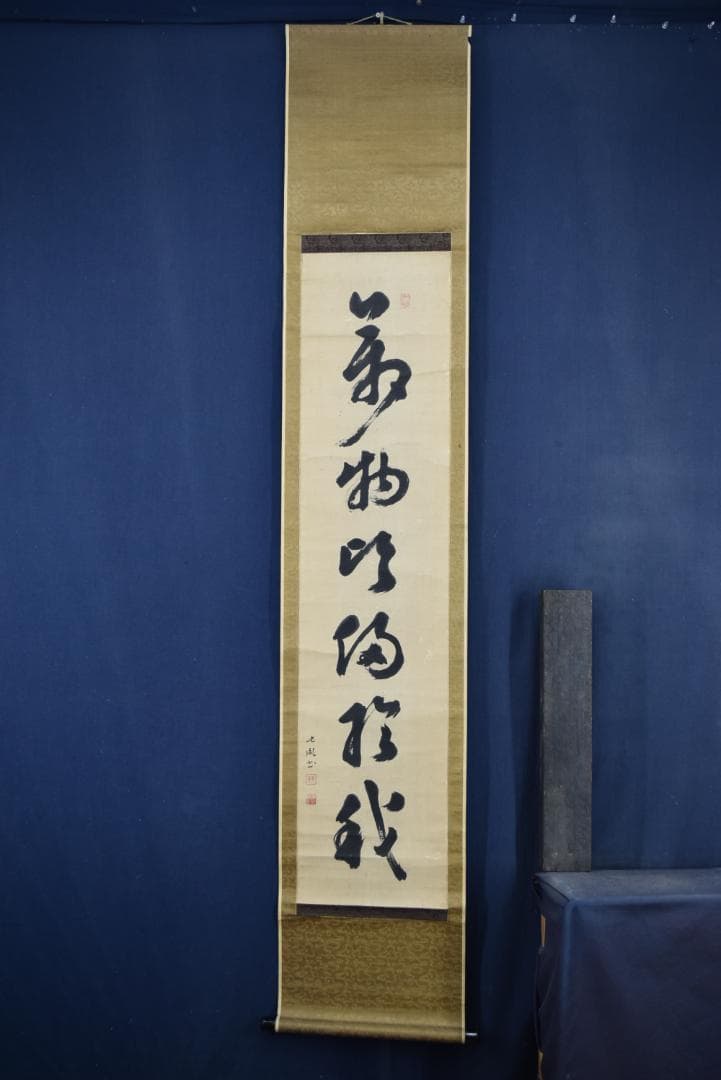 萬物皆備於我